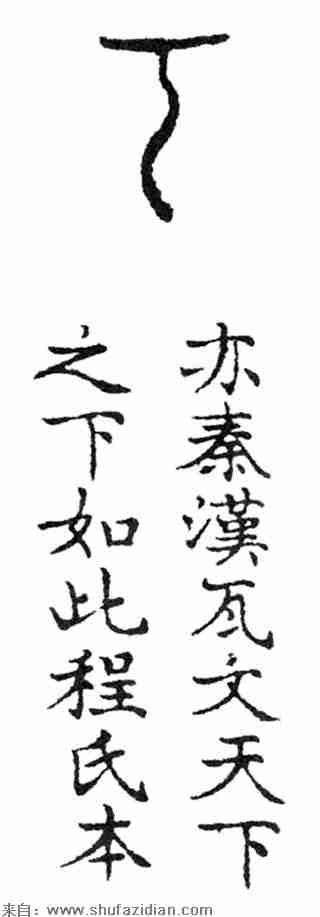 下
亦秦漢瓦文天下
之下如此程氏本
来自：www.shufazidian.com